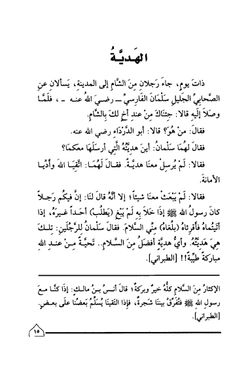 الهديَّةُ
ذات يومٍ، جاءَ رَجلانِ مِنَ الشَّامِ إلى المدينةِ، يَسألانِ عن
الصَّحابيِّ الجَليلِ سَلْمَانَ الفَارِسيِّ ـ رضي اللهُ عنه ـ، فلَمَّا
وَصَلا إليْهِ قالا: جئناكَ مِنْ عندِ أخٍ لكَ بالشَّامِ.
فقالَ: مَنْ هُوَ؟ قالا: أبو الدَّرْدَاءِ رضي الله عنه.
فقالَ لهُمَا سَلْمَانُ: أينَ هَديَّتُهُ الَّتِي أرسَلَها مَعَكُمَا؟
قالا: لَمْ يُرسِلْ معنَا هديَّةً. فقالَ لهُمَا: اتَّقِيَا اللهَ وأدِّيا
الأمانةَ.
فقالا: لَمْ يَبْعَثْ معنَا شيئًا؛ إلا أنَّهُ قالَ لنَا: إنَّ فيكُم رَجلاً
كانَ رسولُ اللهِ ﷺ إذَا خَلاَ بهِ لَمْ يَبْغِ (يَطلُبْ) أحَداً غيرَهُ، إذَا
أتَيْتُماهُ فأقْرِئَاهُ (بلِّغَاهُ) مِنِّي السَّلامَ. فقالَ سَلْمانُ للرَّجُلَيْنِ: تِلكَ
هِيَ هَديَّتُهُ. وأيُّ هديَّةٍ أفضلُ مِنَ السَّلامِ.. تَحيَّةً مِنْ عندِ اللهِ
مباركةً طيبةً!! [الطبراني].
الإكثارُ مِنَ السَّلامِ كلُّهُ خيرٌ وبركةٌ؛ قالَ أنسُ بنُ مالكٍ: إذَا كنَّا معَ
رسولِ اللهِ ﷺ فتُفرِّقُ بيننَا شجرةٌ، فإذَا التقينَا يُسلِّمُ بَعضُنَا علَى بعضٍ
[الطبراني].
١٥